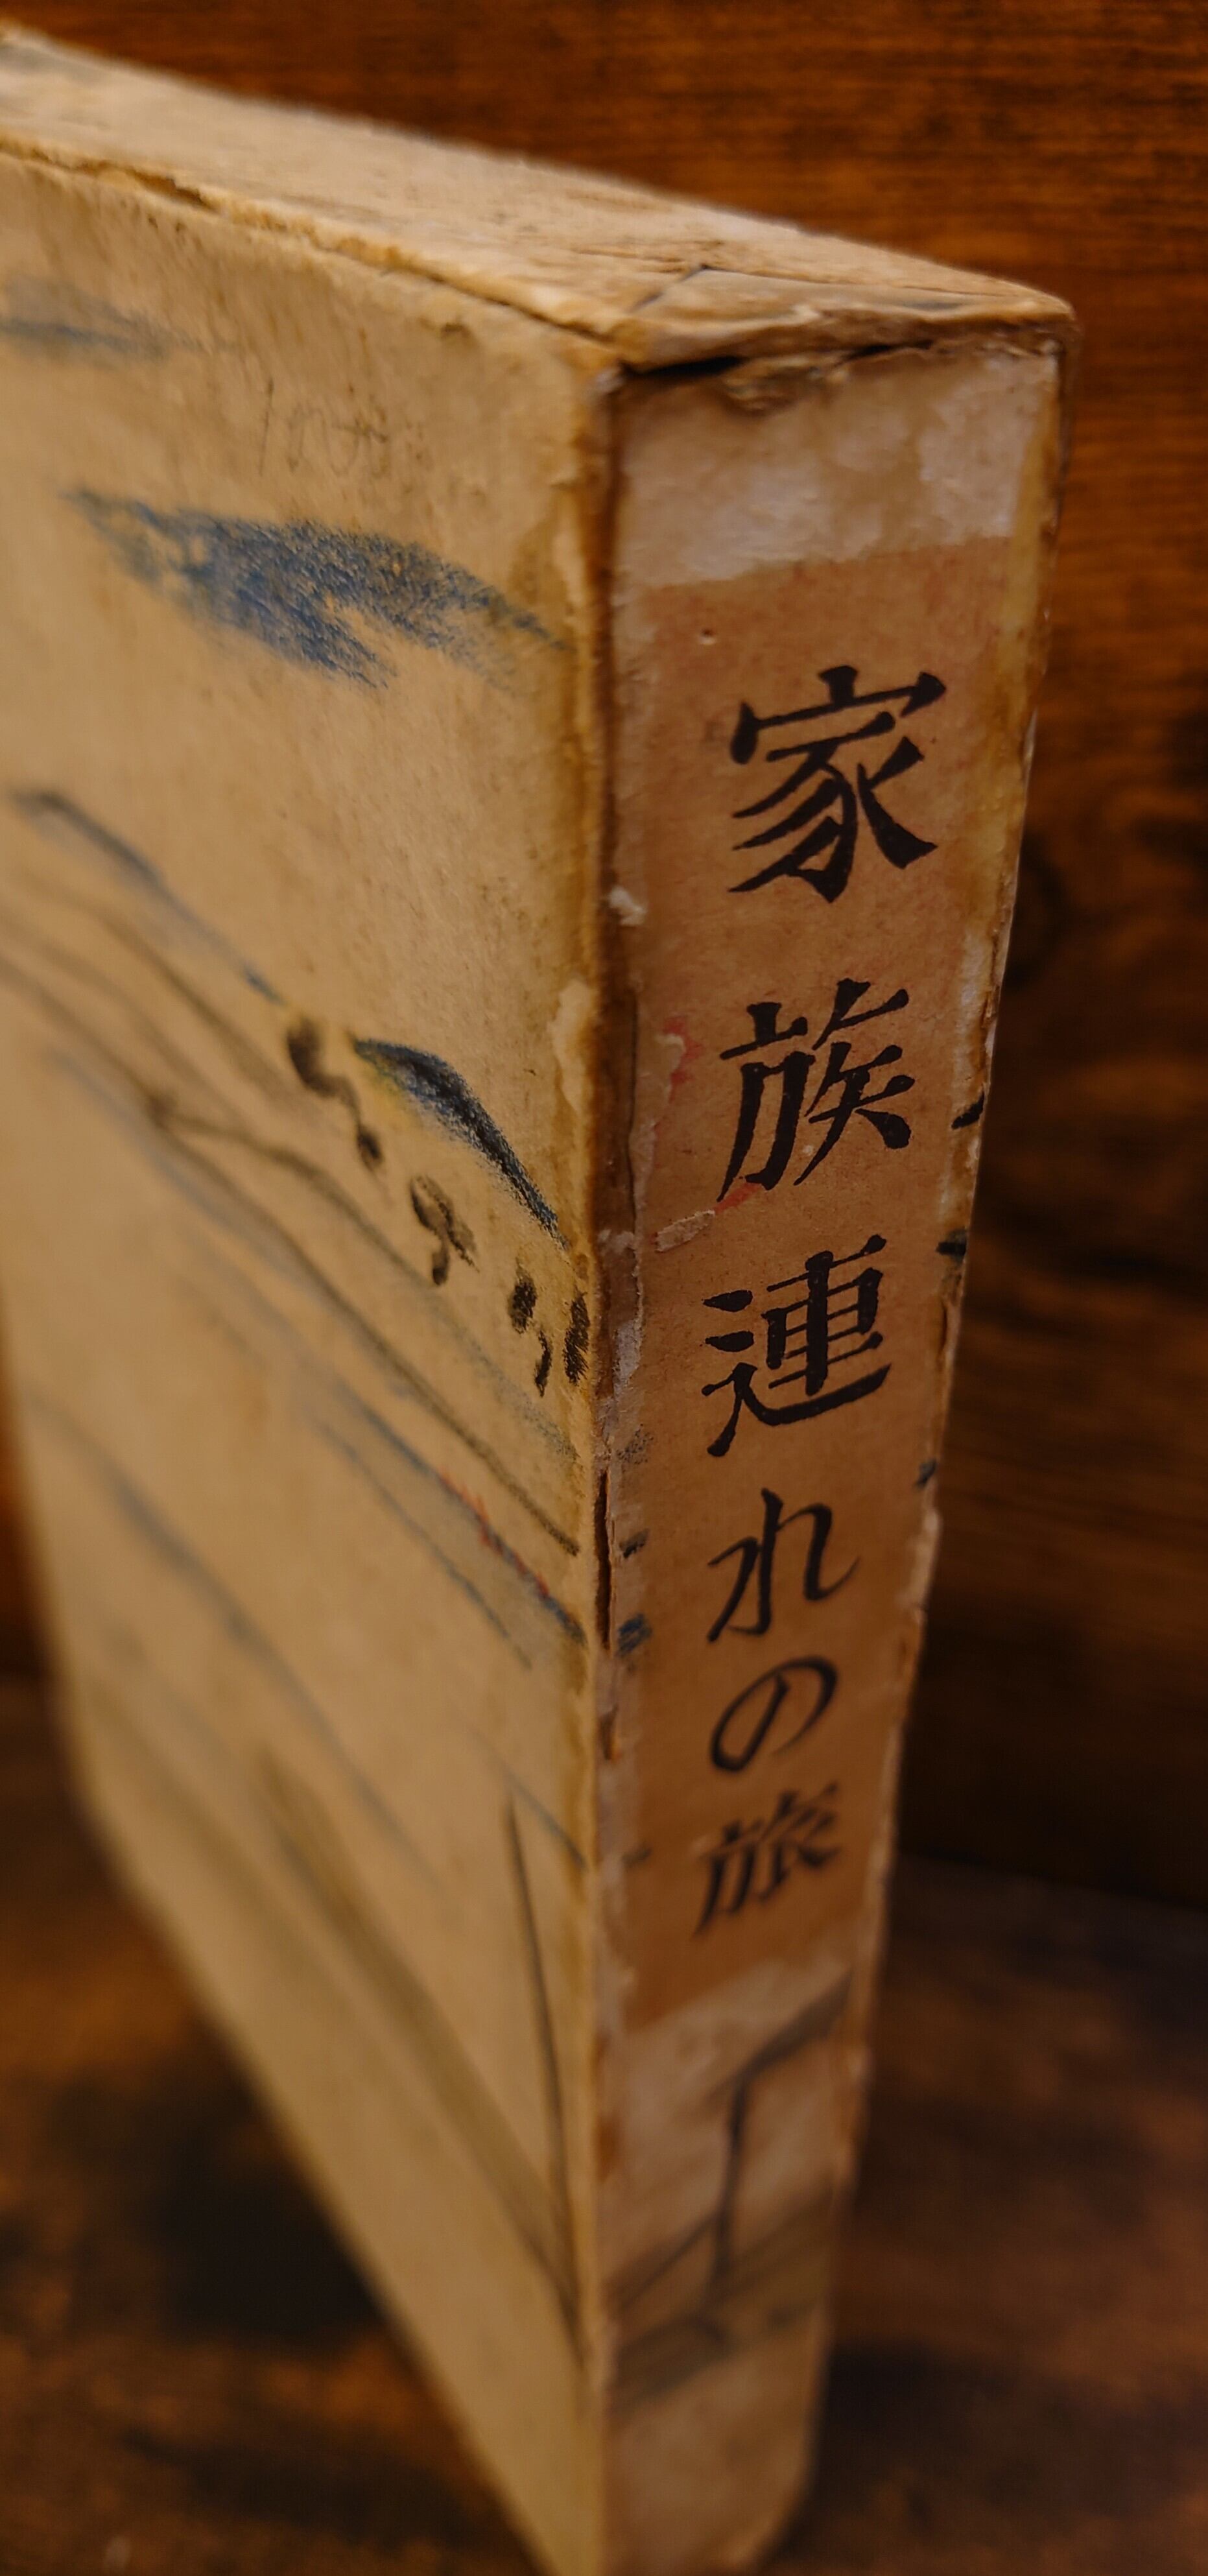 家族連れの旅